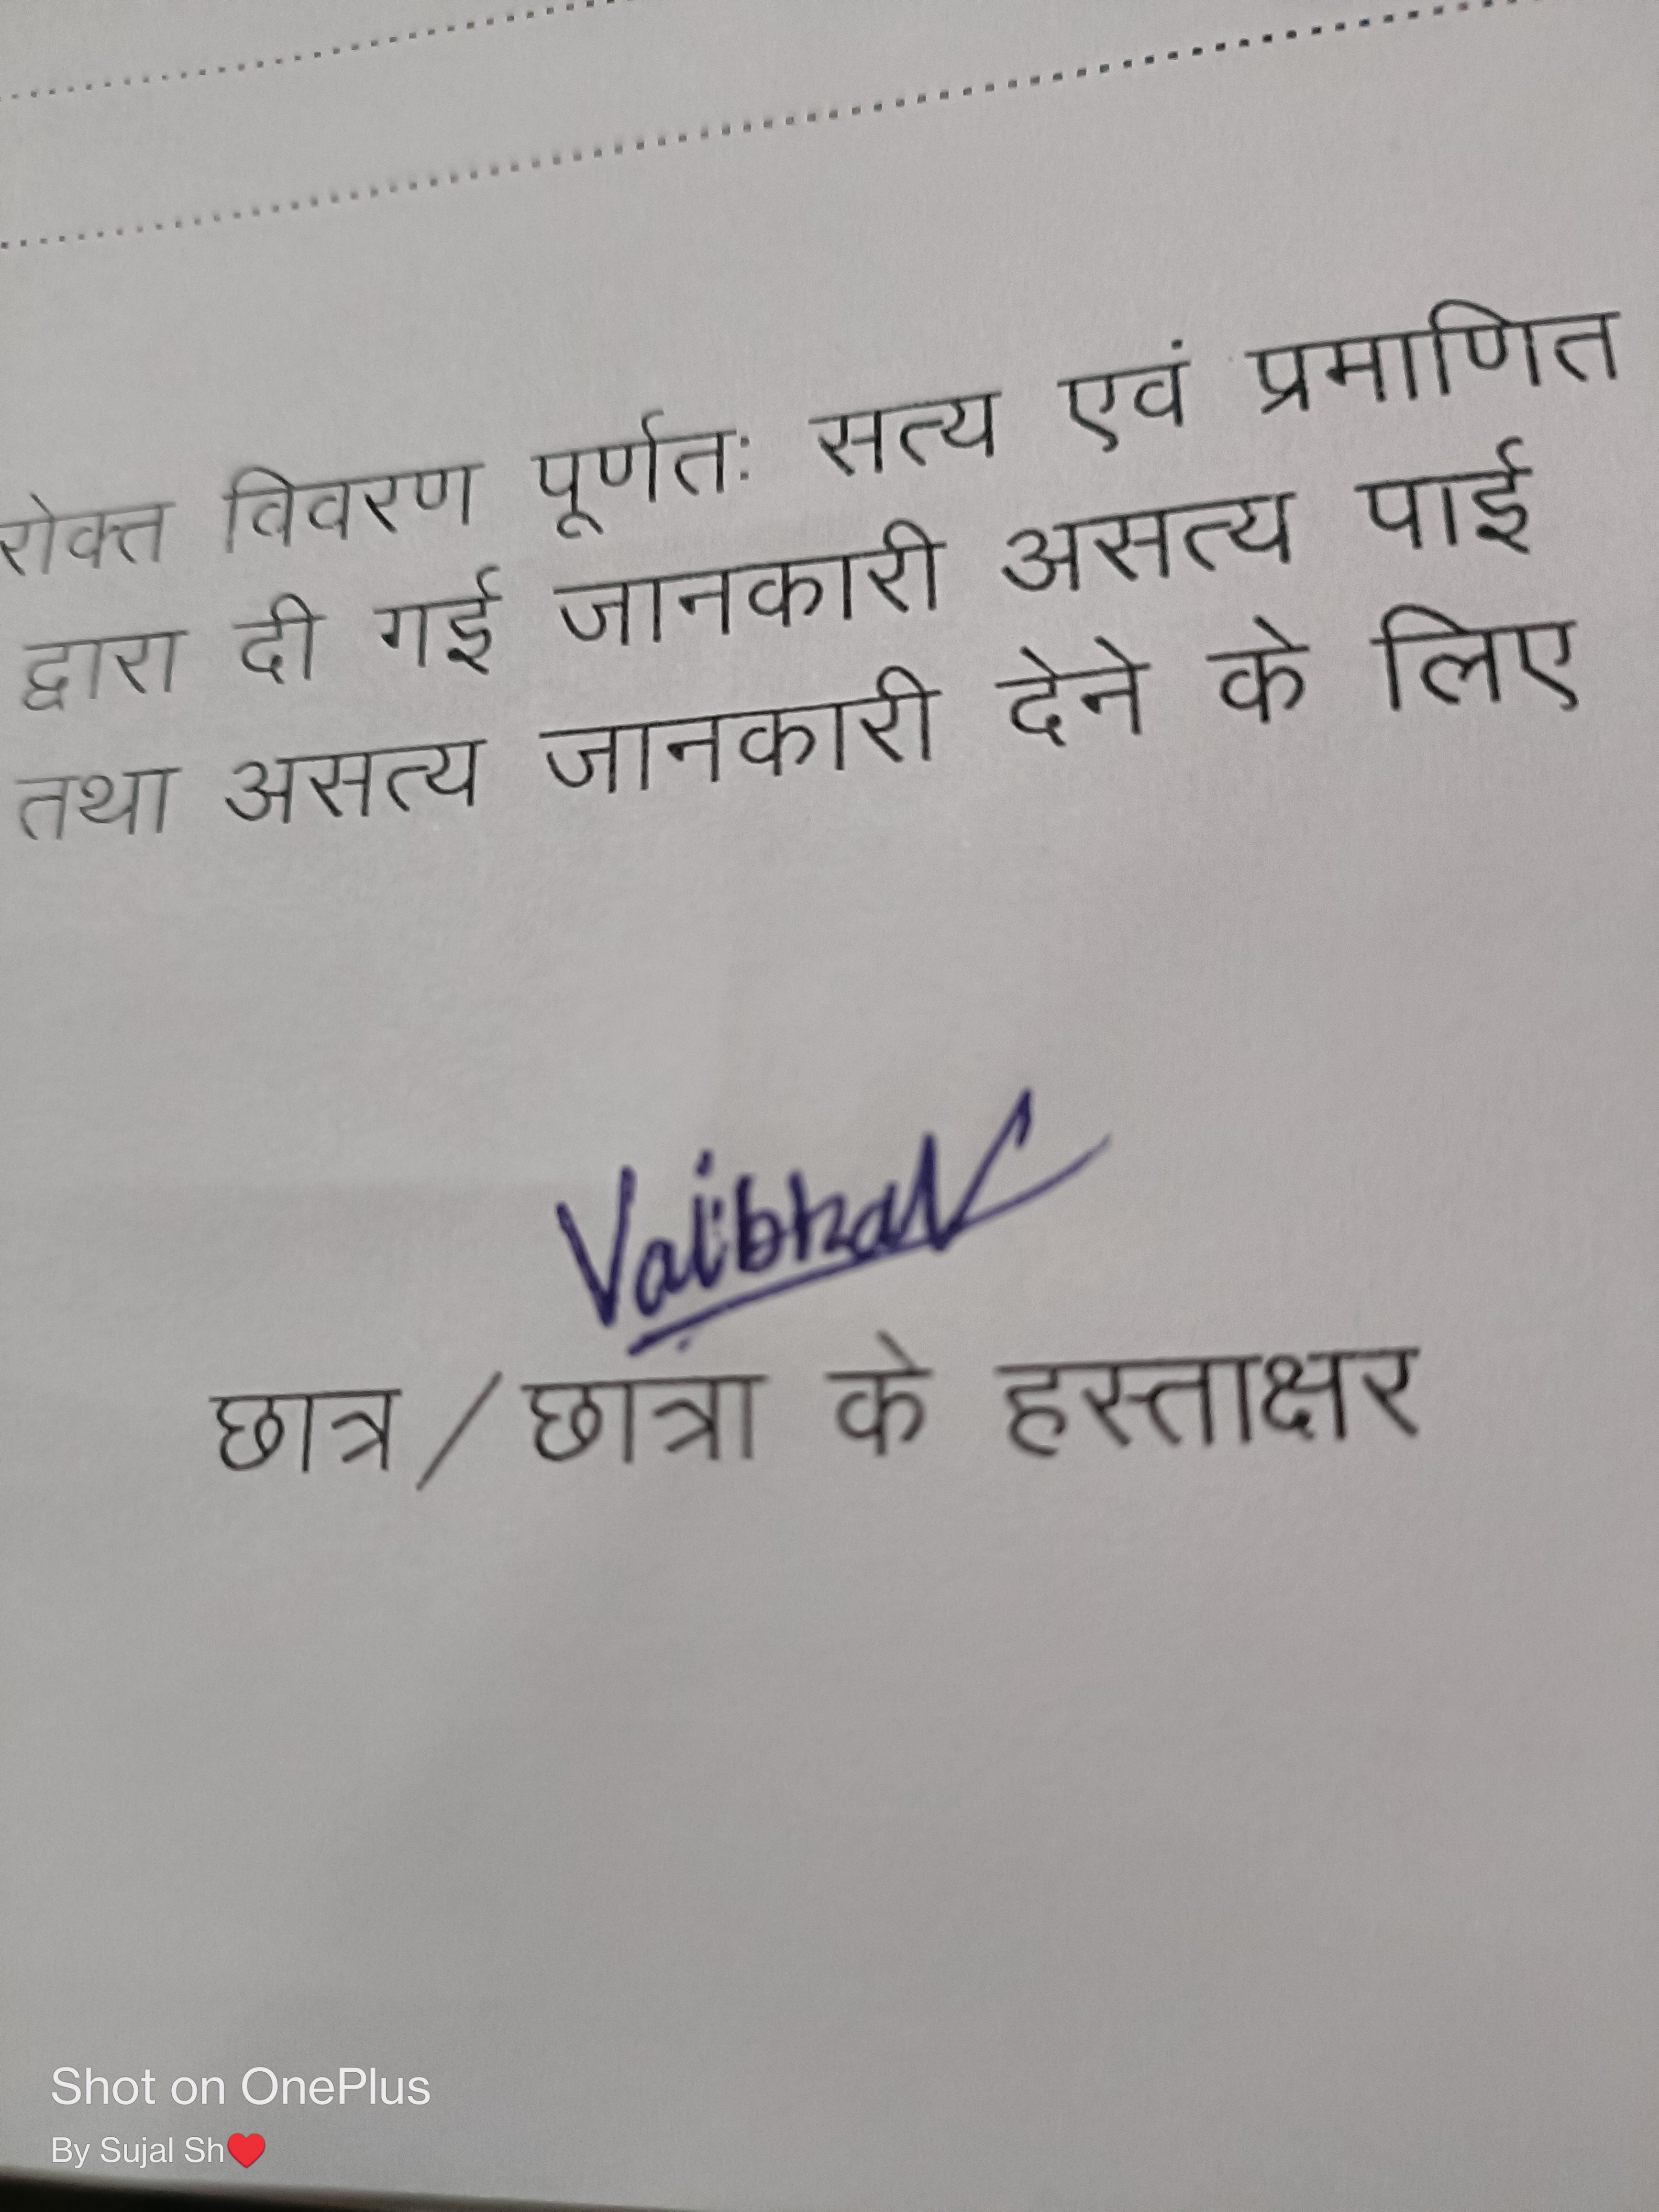 रोक्त विवरण पूर्णतः सत्य एवं प्रमाणित
द्वारा दी गई जानकारी असत्य पाई
तथा असत्य जानकारी देने के लिए
Vaibhav
छात्र/छात्रा के हस्ताक्षर
Shot on OnePlus
By Sujal Sh❤️